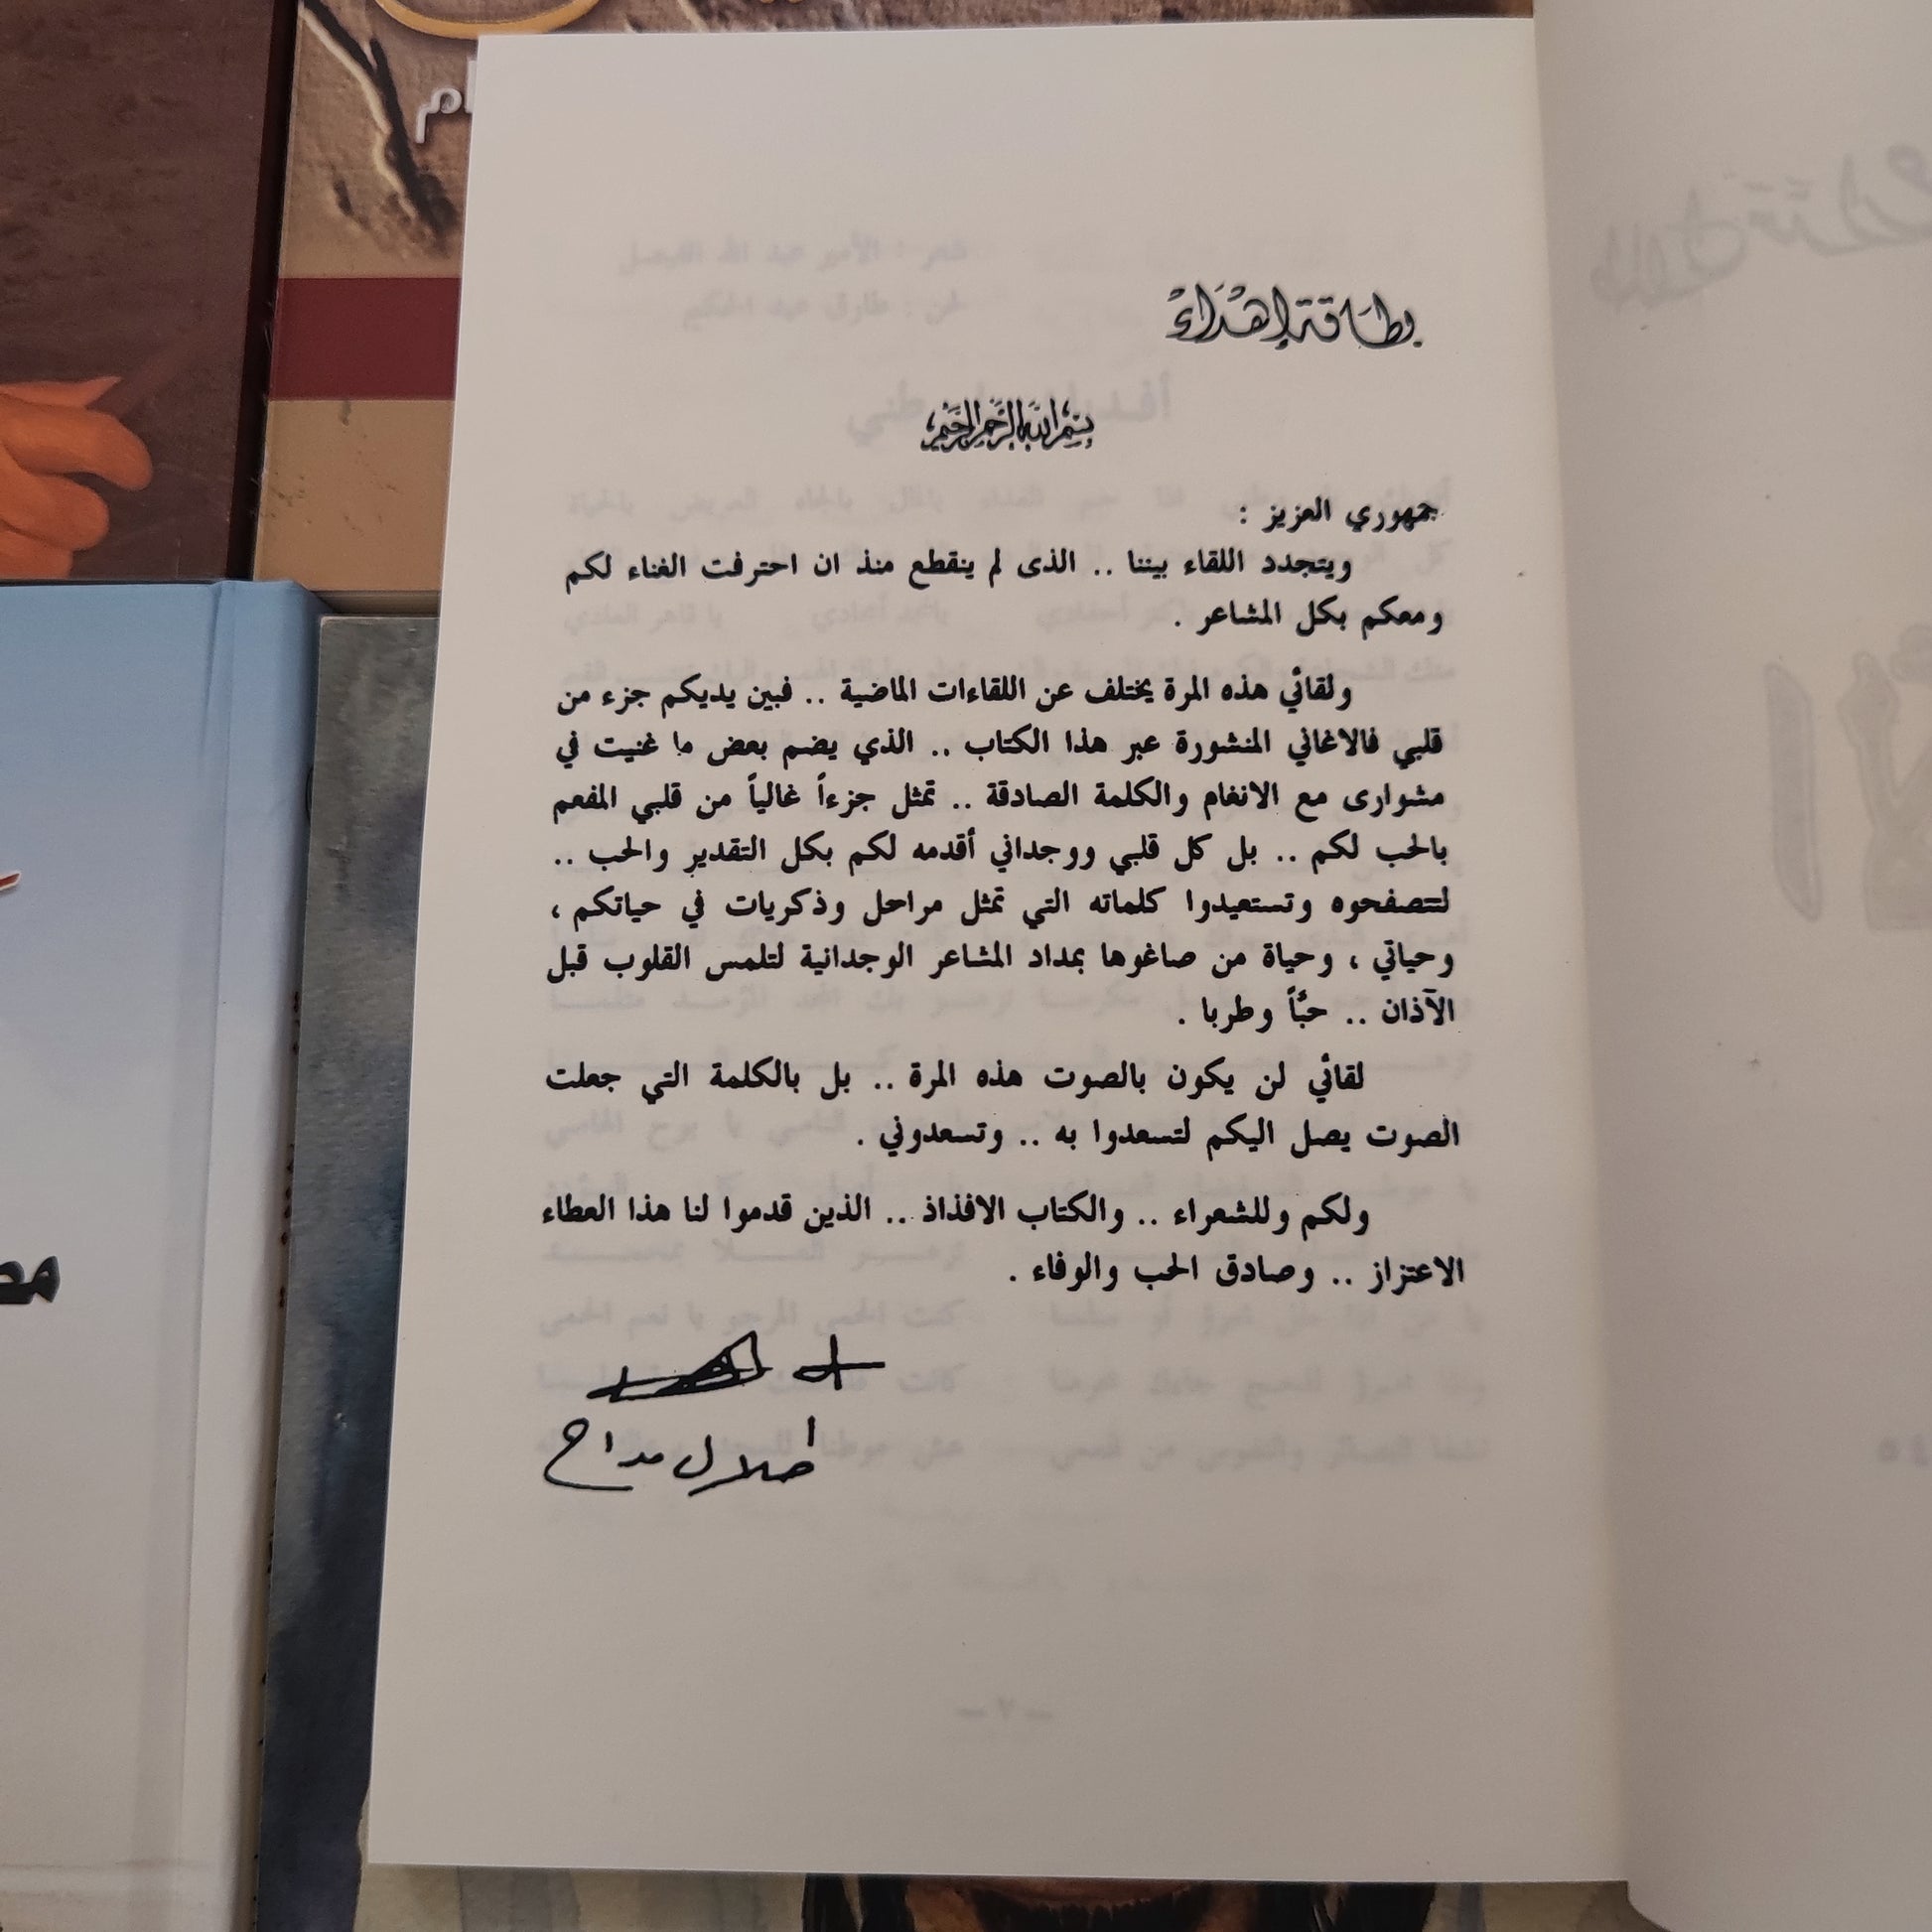 بطاقة إهداء
بسم الله الرحمن الرحيم
جمهوري العزيز :
ويتجدد اللقاء بيننا .. الذى لم ينقطع منذ ان احترفت الغناء لكم
ومعكم بكل المشاعر .
ولقائي هذه المرة يختلف عن اللقاءات الماضية .. فبين يديكم جزء من
قلبي فالاغاني المنشورة عبر هذا الكتاب .. الذي يضم بعض ما غنيت في
مشوارى مع الانغام والكلمة الصادقة .. تمثل جزءاً غالياً من قلبي المفعم
بالحب لكم .. بل كل قلبي ووجداني أقدمه لكم بكل التقدير والحب ..
لتتصفحوه وتستعيدوا كلماته التي تمثل مراحل وذكريات في حياتكم ،
وحياتي ، وحياة من صاغوها بمداد المشاعر الوجدانية لتلمس القلوب قبل
الآذان .. حبّاً وطربا .
لقائي لن يكون بالصوت هذه المرة .. بل بالكلمة التي جعلت
الصوت يصل اليكم لتسعدوا به .. وتسعدوني .
ولكم وللشعراء .. والكتاب الافذاذ .. الذين قدموا لنا هذا العطاء
الاعتزاز .. وصادق الحب والوفاء .
طلال مداح
شعر : الأمير عبد الله الفيصل
لحن : طارق عبد الحكيم